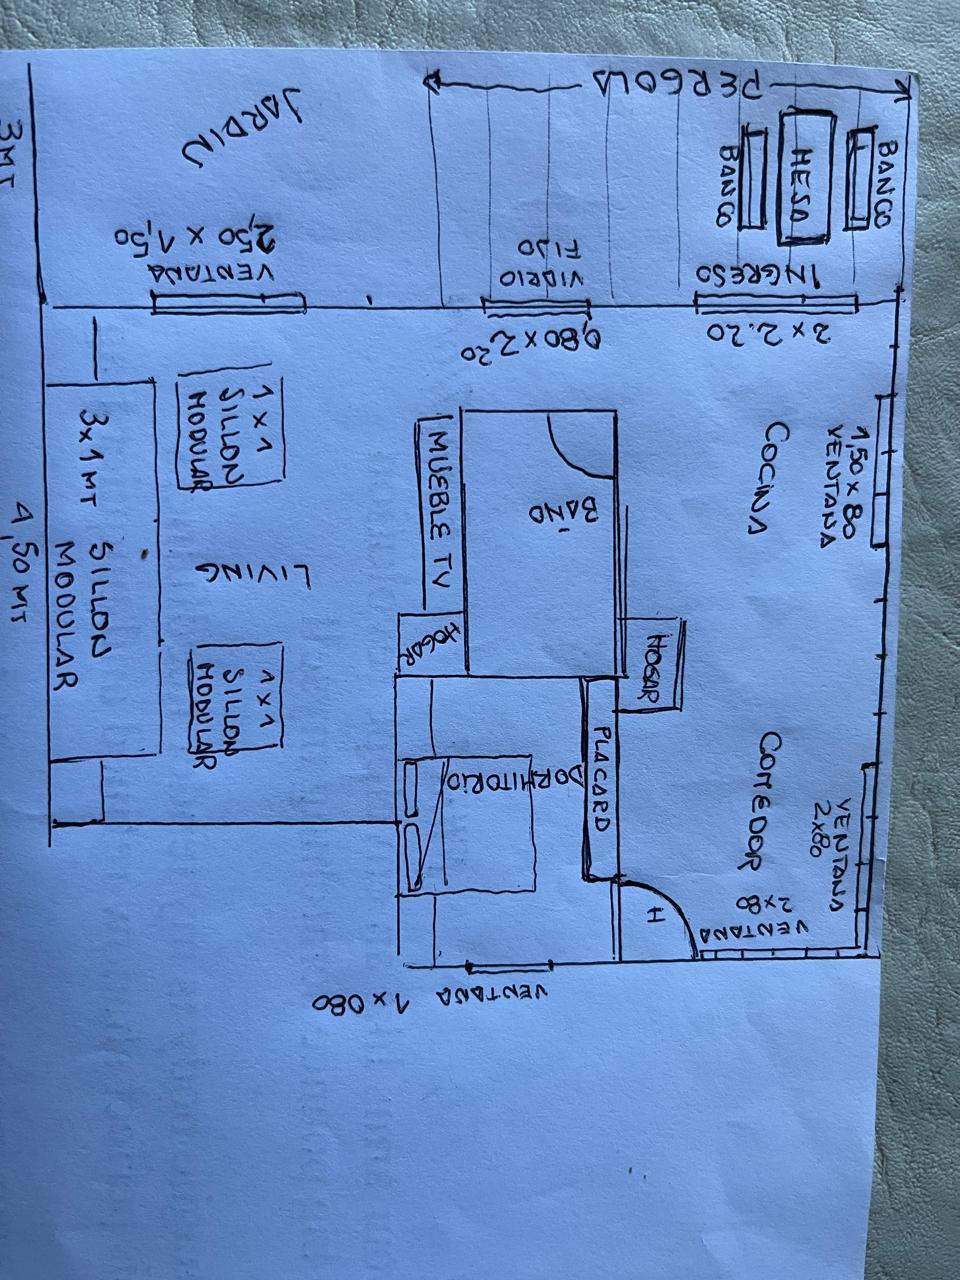 PERGOLA
BANCO
MESA
BANCO
JARDIN
3 MT
INGRESO
2 x 2.20
VIDRIO
FIJO
0,80 x 2,20
VENTANA
2,50 x 1,50
1,50 x 80
VENTANA
COCINA
BAÑO
MUEBLE TV
1 x 1
SILLON
MODULAR
3x1 MT SILLON
MODULAR
4,50 MT
LIVING
HOGAR
HOGAR
1 x 1
SILLON
MODULAR
PLACARD
DORMITORIO
COMEDOR
VENTANA
2x80
VENTANA
2x80
H
VENTANA 1 x 080